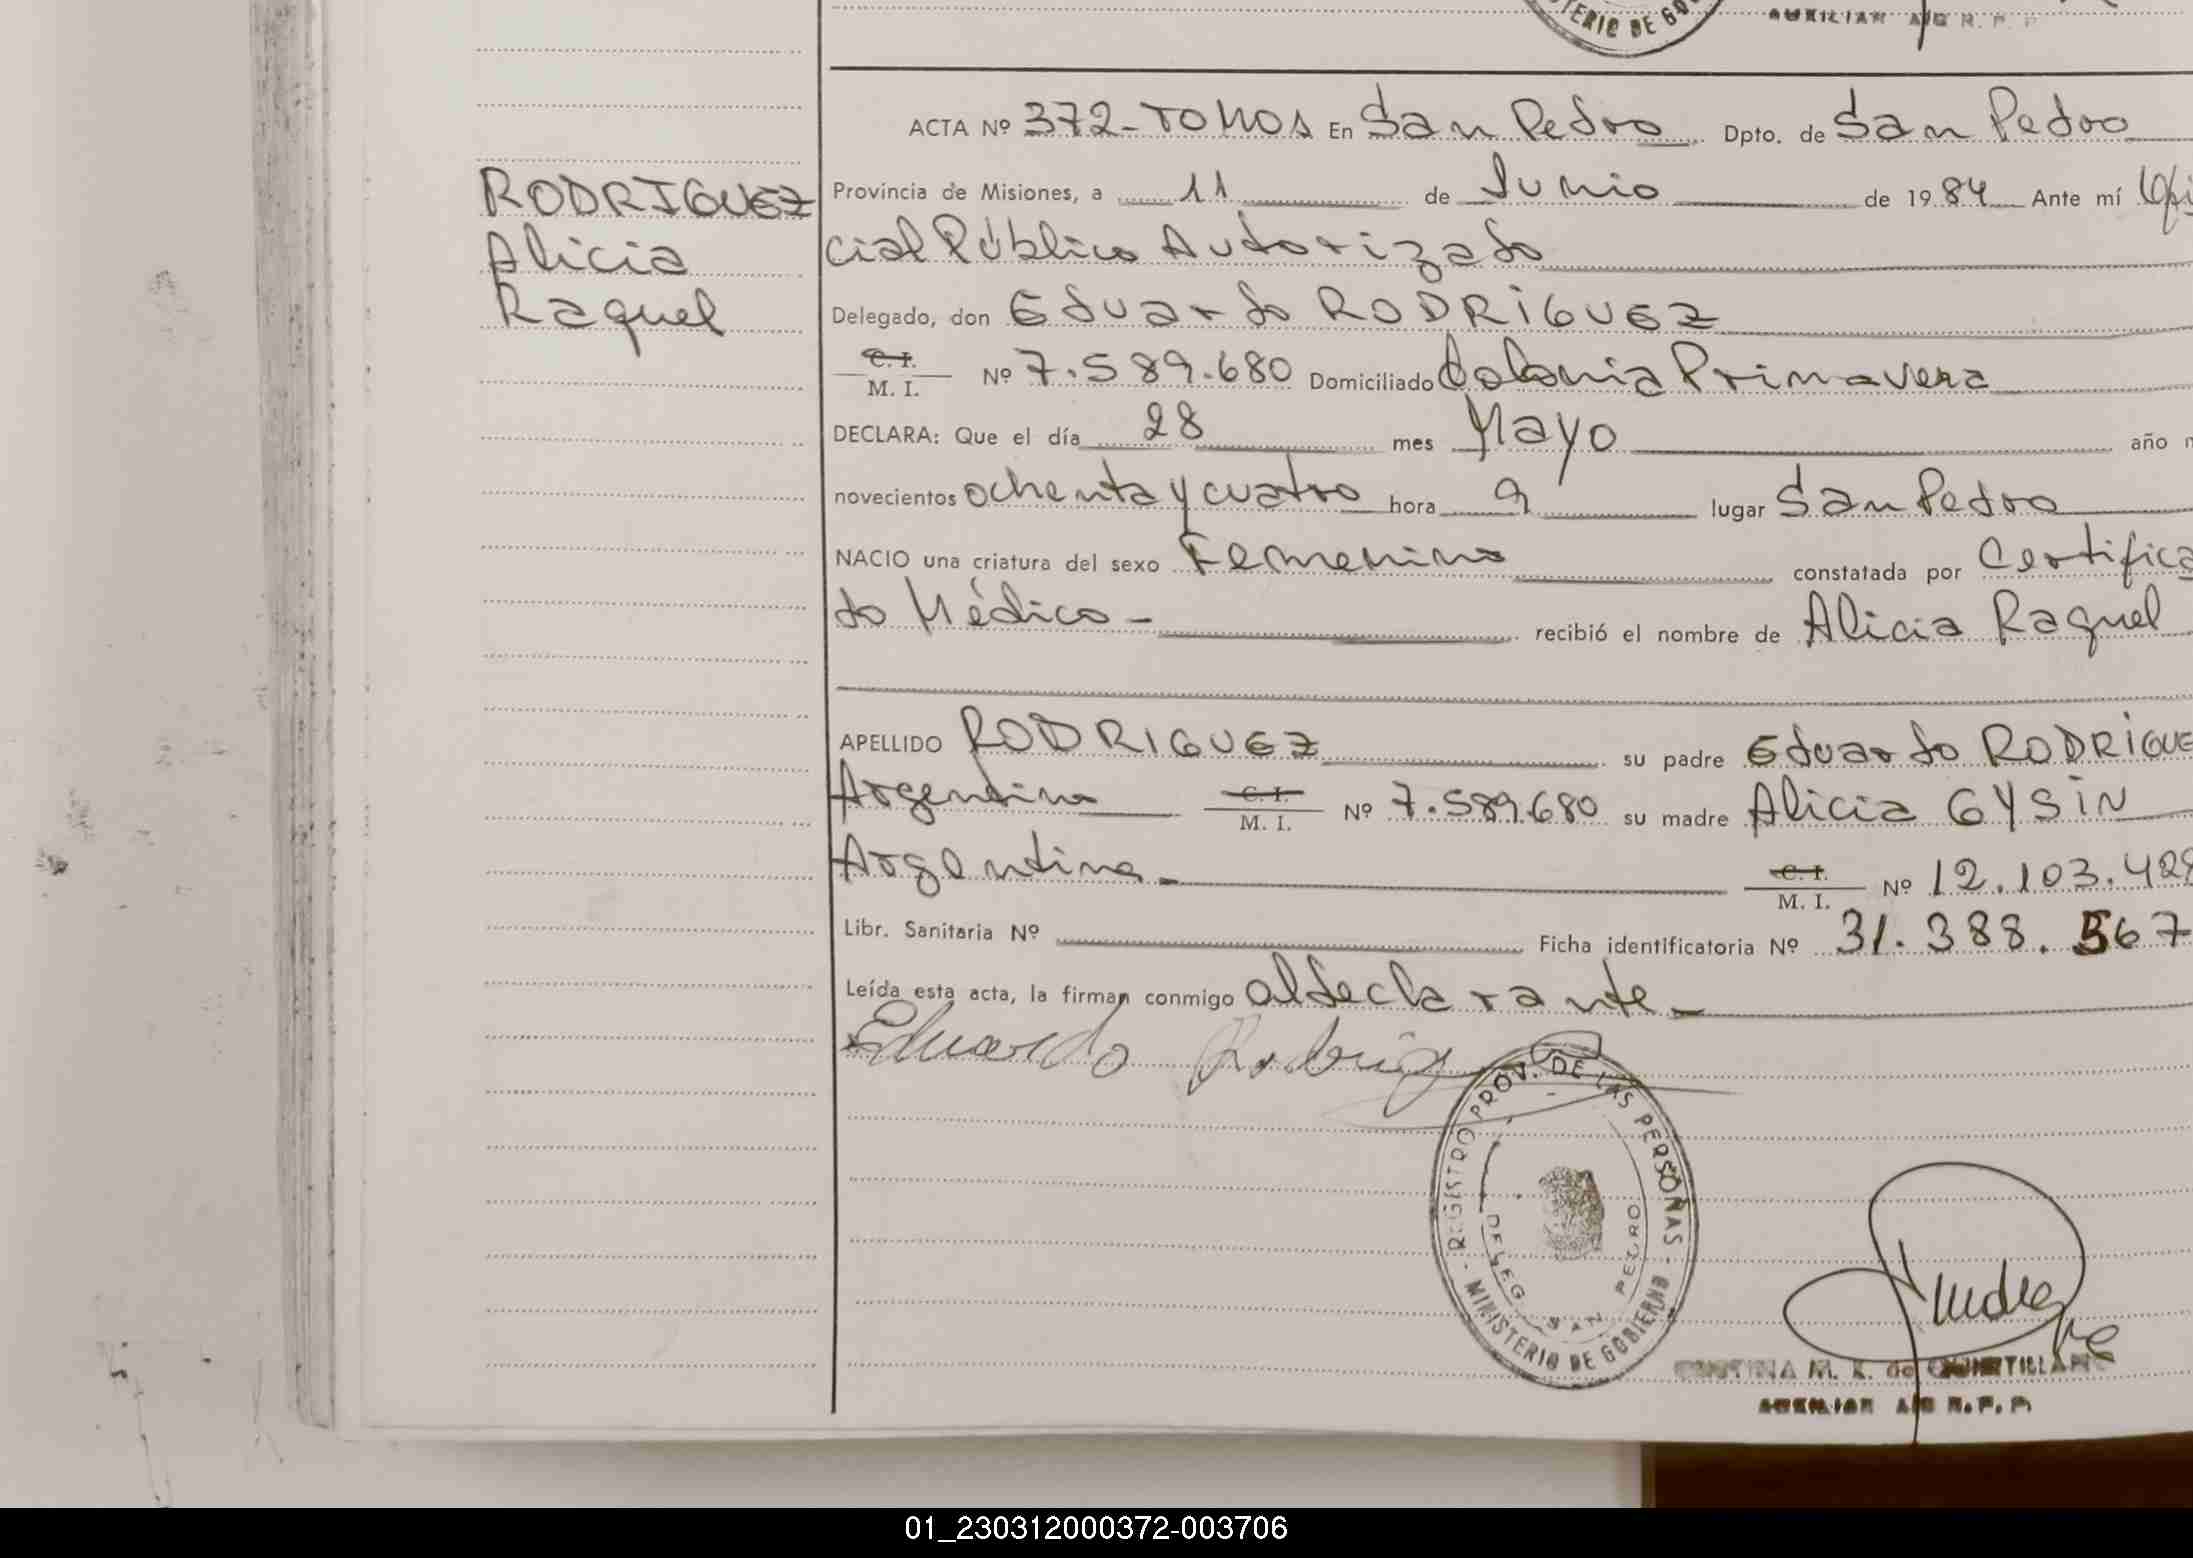 TERIO DE GO
AUXILIAR A/C R. P. P
ACTA Nº 372-TOMOS En San Pedro Dpto. de San Pedro
RODRIGUEZ
Alicia
Raquel
Provincia de Misiones, a 11 de Junio de 1984 Ante mí Ofi
cial Público Autorizado
Delegado, don Eduardo RODRIGUEZ
C. I.
M. I. Nº 7.589.680 Domiciliado Colonia Primavera
DECLARA: Que el día 28 mes Mayo año
novecientos ochenta y cuatro hora 9 lugar San Pedro
NACIO una criatura del sexo Femenino constatada por Certifica
do Médico - recibió el nombre de Alicia Raquel
APELLIDO RODRIGUEZ su padre Eduardo RODRIGUE
Argentino C. I. M. I. Nº 7.589.680 su madre Alicia GYSIN
Argentina - C. I. M. I. Nº 12.103.428
Libr. Sanitaria Nº Ficha identificatoria Nº 31.388.567
Leída esta acta, la firman conmigo el declarante -
Eduardo Rodrig
REGISTRO PROV. DE LAS PERSONAS - MINISTERIO DE GOBIERNO -
DELEG. SAN PEDRO
M. K. de QUINTILLAN
AUXILIAR A/C R. P. P.
01_230312000372-003706